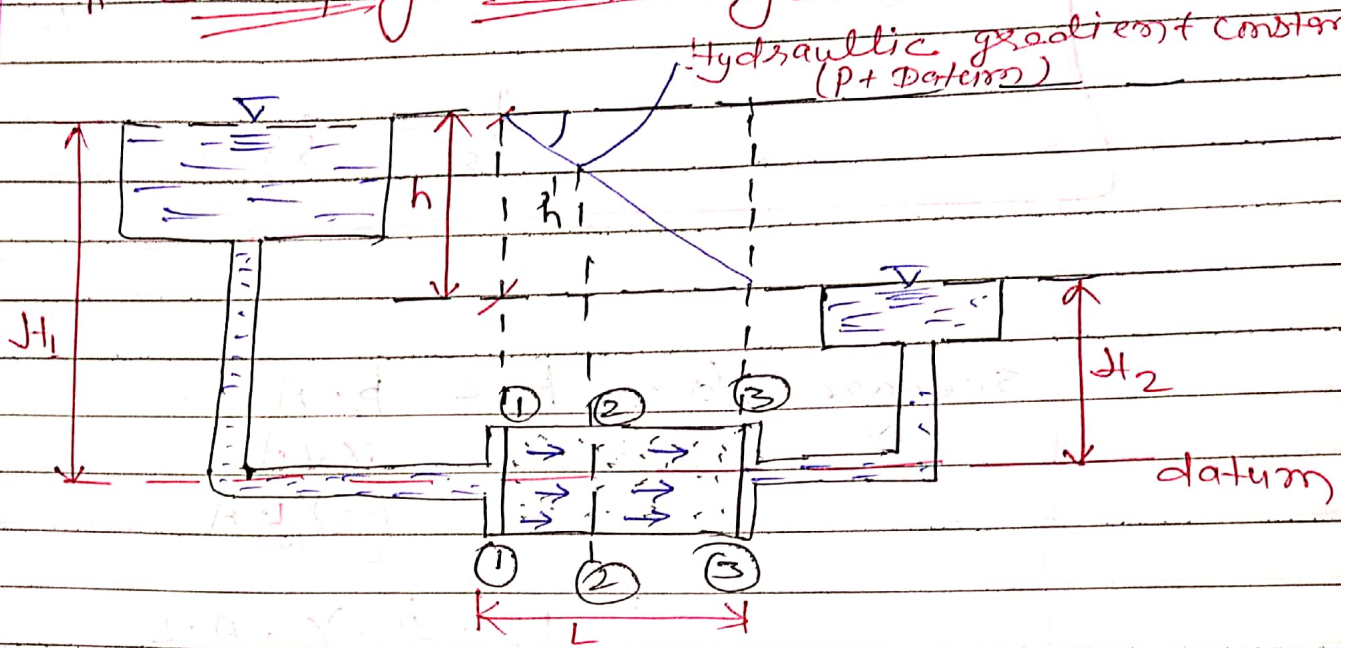 Hydraullic gradient constan
(P+ Datum)
h
h'
H1
H2
① ② ③
datum
① ② ③
L